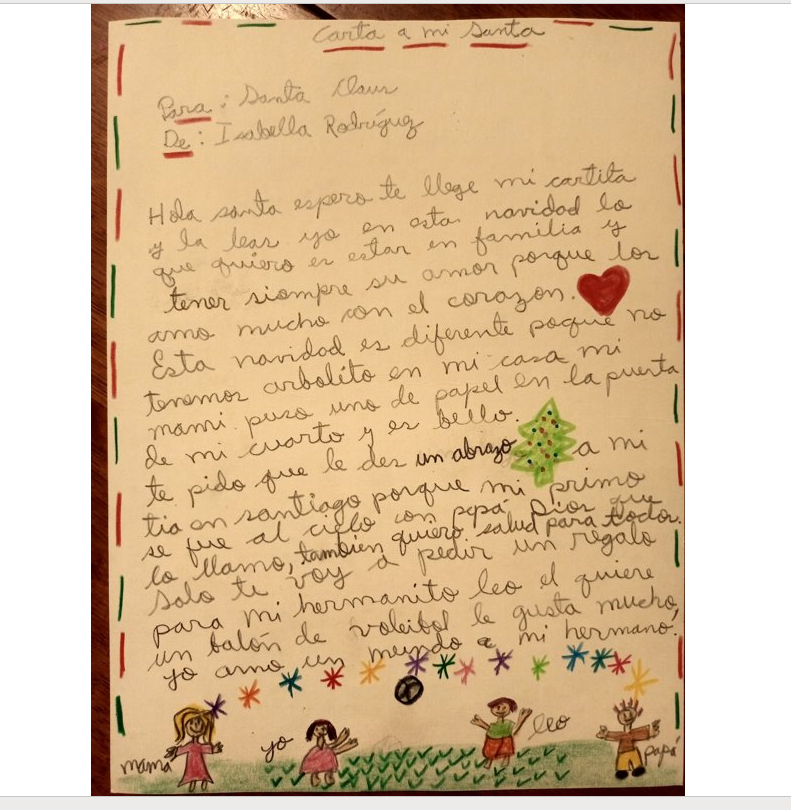 Carta a mi Santa
Para: Santa Claus
De: Isabella Rodríguez
Hola santa espero te llege mi cartita
y la leas yo en esta navidad lo
que quiero es estar en familia y
tener siempre su amor porque los
amo mucho con el corazon.
Esta navidad es diferente poque no
tenemos arbolito en mi casa mi
mami puso uno de papel en la puerta
de mi cuarto y es bello.
te pido que le des un abrazo a mi
tia en santiago porque mi primo
se fue al cielo con papá Dios que
lo llamo, también quiero salud para todos.
Solo te voy a pedir un regalo
para mi hermanito leo el quiere
un balón de voleibol le gusta mucho,
yo amo un mundo a mi hermano!
mamá
yo
leo
papá